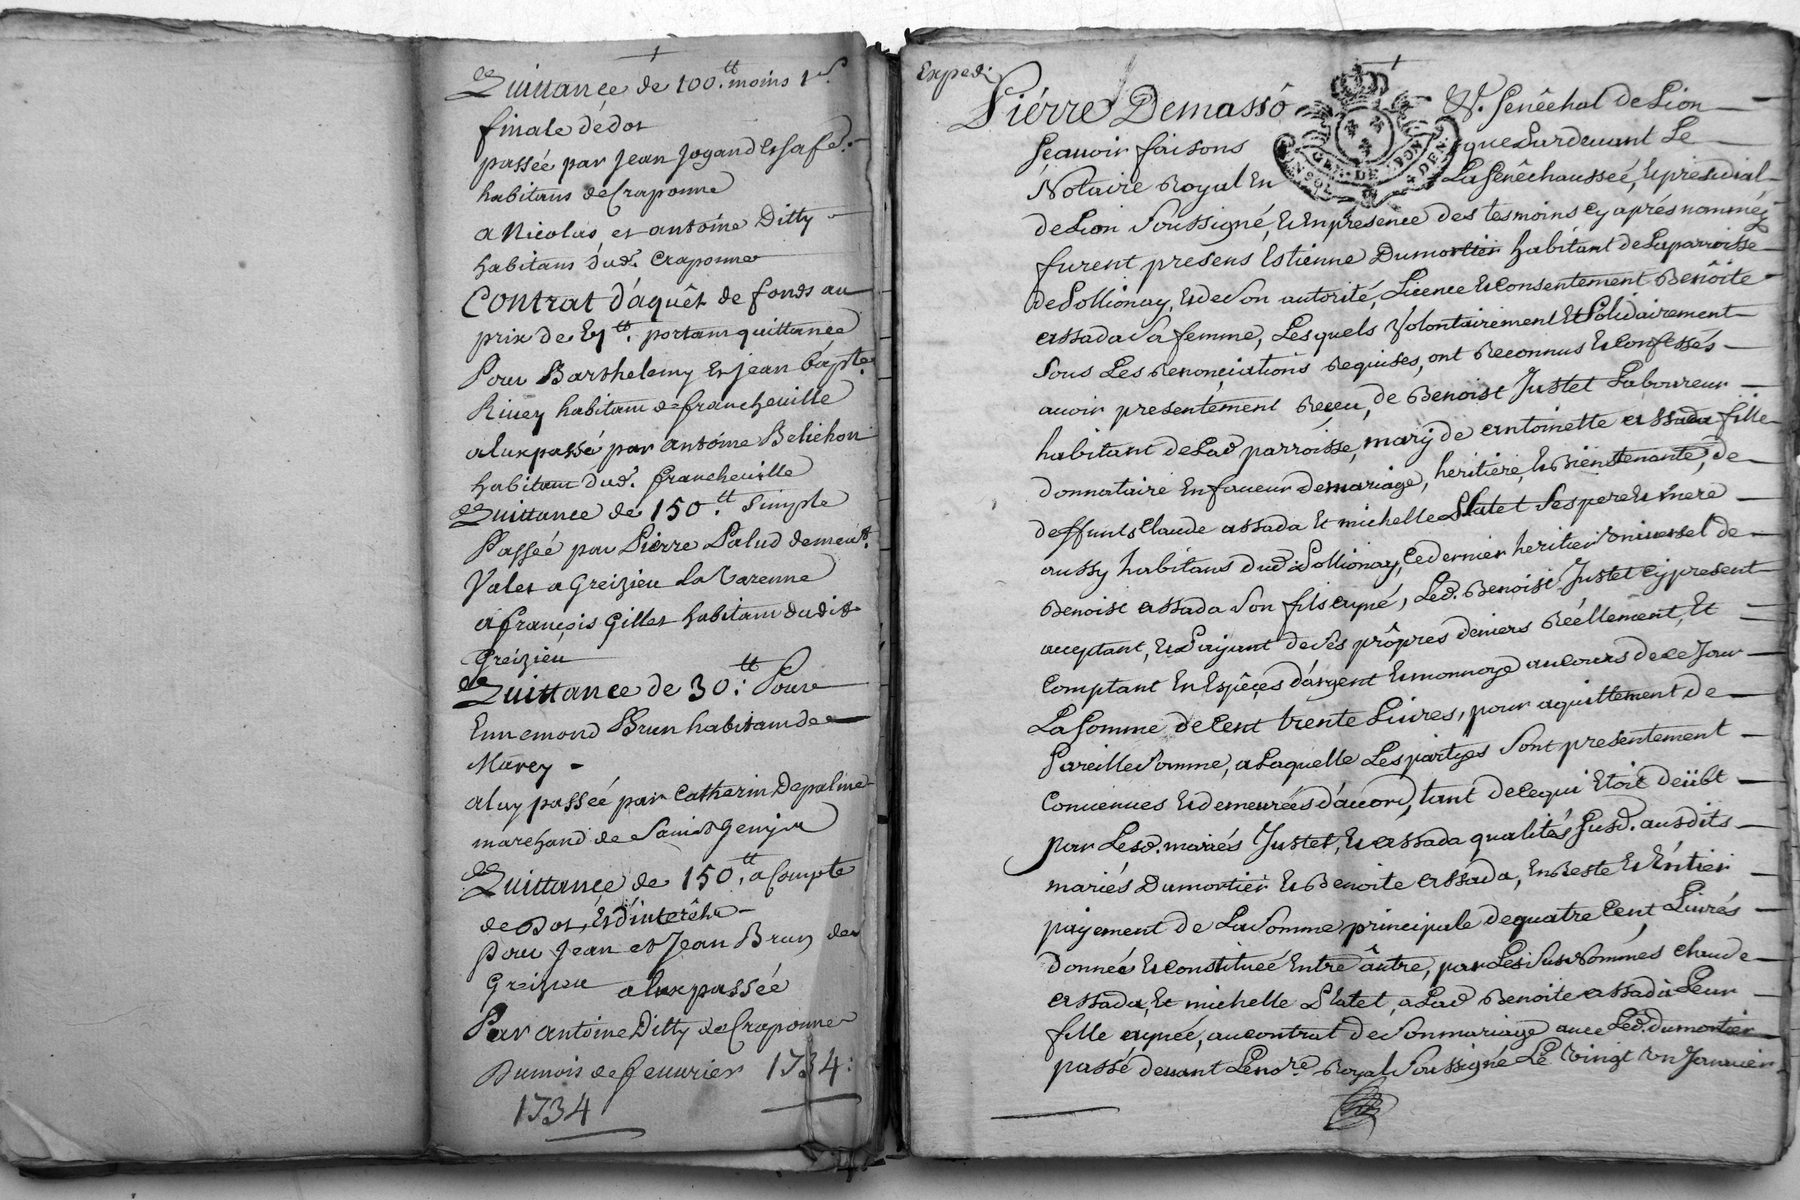 Quittance de 100.tt moins 1 s.
finale dedot
passée par Jean Jogand et sa fe.
habitans de Craponne
a Nicolas et antoine Ditty
habitans dud. Craponne
Contrat d'aquêt de fonds au
prix de tt. portant quittance
Pour Barthelemy et jean bapte.
Rivey habitans de francheville
a luy passé par antoine Belichon
habitant dud. francheville
Quittance de 150.tt simple
Passée par Pierre Palud demeurt.
Valet a Greizieu La Varenne
a françois Gillet habitant dudit
Greizieu
Quittance de 30.tt Pour
Ennemond Brun habitant de
Marcy
a luy passée par Catherin Depalme
marchand de Saint
Quittance de 150.tt a Compte
de Dot, Et d'interêts
Pour Jean et Jean Brun de
Greizieu a lux passée
Par antoine Ditty de Craponne
Du mois de feuurier 1734:
1734
Exped.
Piérre Demassô Sénêchal de Lion
Sçauoir faisons que Pardeuant Le
Notaire Royal En La Senêchausseé, Et presidial
de Lion Soussigné, Et En presence des tesmoins cy aprés nommés
furent presens Estienne Dumortier habitant de La parroisse
de Pollionay, Et de Son autorité, Licence Et consentement Benôite
assada Sa femme, Lesquels Volontairement Et Solidairement
Sous Les Renonçiations Requises, ont Reconnus Et confessés
auoir presentement Reçeu, de Benoist Justet Laboureur
habitant de Lad parroisse, mary de antoinette assada fille
donnataire En faueur de mariage, heritiere, Et Bientenante, de
deffunts Claude assada Et michelle Platet Ses pere Et mere
aussy habitans dud Pollionay, Ce dernier heritier Vniuersel de
Benoist assada Son fils ayné, Led. Benoist Justet Cy present
acceptant, Et Payant de Ses prôpres deniers Réellement, Et
Comptant En Espêçes d'argent Et monnoye au cours de ce Jour
La Somme de Cent trente Liures, pour aquittement de
Pareille Somme, a Laquelle Les partyes Sont presentement
Conuenues Et demeurées d'accord, tant de Ce qui Etoit deübt
par Lesd. mariés Justet, Et assada qualités Susd. ausdits
mariés Dumortier Et Benoite assada, En Reste Et Entier
payement de La Somme principale de quatre Cent Liurés
donneé Et constitueé Entre âutre, par Les Susnommés claude
assada, Et michelle Platet, a Lad Benoite assada Leur
fille aynée, au contrat de Son mariage auec Led. dumortier
passé deuant Le nore. Royal Soussigné Le Vingt Vn Januier